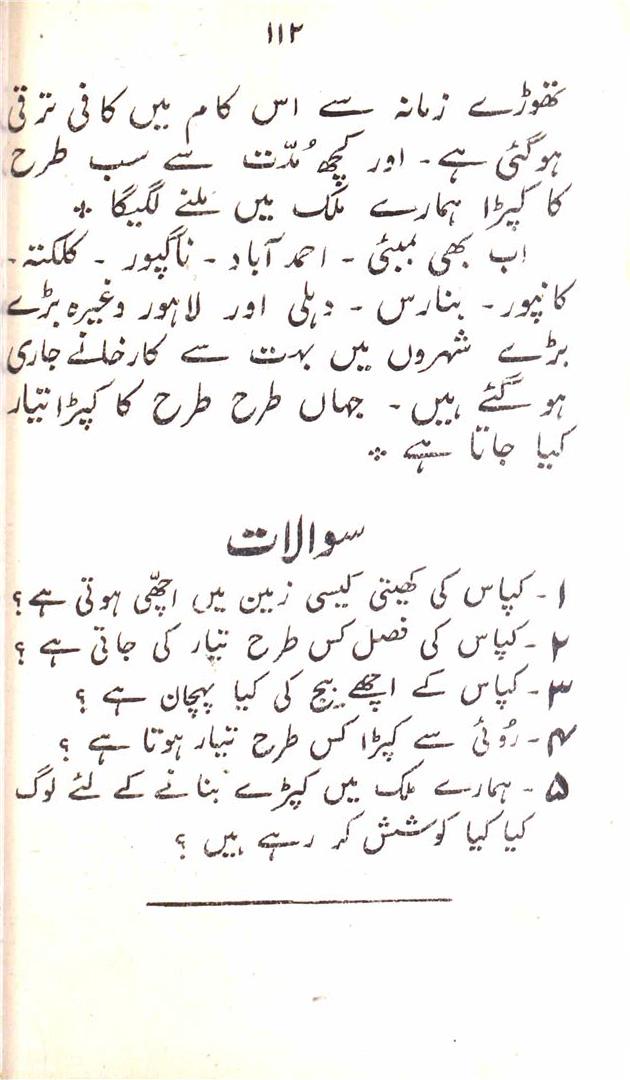 ۱۱۲
تھوڑے زمانہ سے اس کام میں کافی ترقی
ہوگئی ہے۔ اور کچھ مُدّت سے سب طرح
کا کپڑا ہمارے ملک میں ملنے لگیگا ٭
اب بھی بمبئی ۔ احمد آباد ۔ ناگپور ۔ کلکتہ ۔
کانپور ۔ بنارس ۔ دہلی اور لاہور وغیرہ بڑے
بڑے شہروں میں بہت سے کارخانے جاری
ہو گئے ہیں ۔ جہاں طرح طرح کا کپڑا تیّار
کیا جاتا ہے ٭
سوالات
۱ ۔ کپاس کی کھیتی کیسی زمین میں اچھّی ہوتی ہے؟
۲ ۔ کپاس کی فصل کس طرح تیار کی جاتی ہے ؟
۳ ۔ کپاس کے اچھے بیج کی کیا پہچان ہے ؟
۴ ۔ رُوئی سے کپڑا کس طرح تیار ہوتا ہے ؟
۵ ۔ ہمارے ملک میں کپڑے بنانے کے لئے لوگ
کیا کیا کوشش کر رہے ہیں ؟